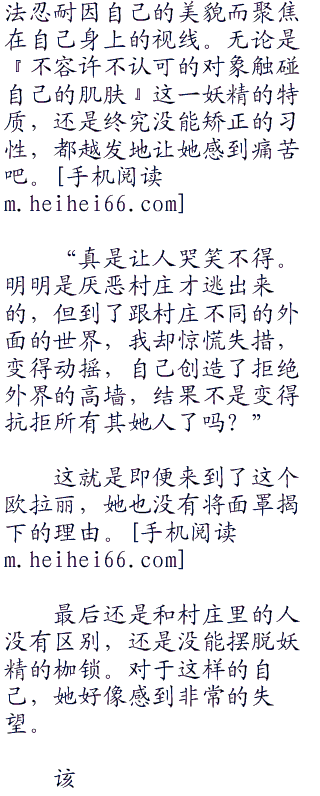 法忍耐因自己的美貌而聚焦
在自己身上的视线。无论是
『不容许不认可的对象触碰
自己的肌肤』这一妖精的特
质，还是终究没能矫正的习
性，都越发地让她感到痛苦
吧。[手机阅读
m.heihei66.com]
“真是让人哭笑不得。
明明是厌恶村庄才逃出来
的，但到了跟村庄不同的外
面的世界，我却惊慌失措，
变得动摇，自己创造了拒绝
外界的高墙，结果不是变得
抗拒所有其她人了吗？”
这就是即便来到了这个
欧拉丽，她也没有将面罩揭
下的理由。[手机阅读
m.heihei66.com]
最后还是和村庄里的人
没有区别，还是没能摆脱妖
精的枷锁。对于这样的自
己，她好像感到非常的失
望。
该